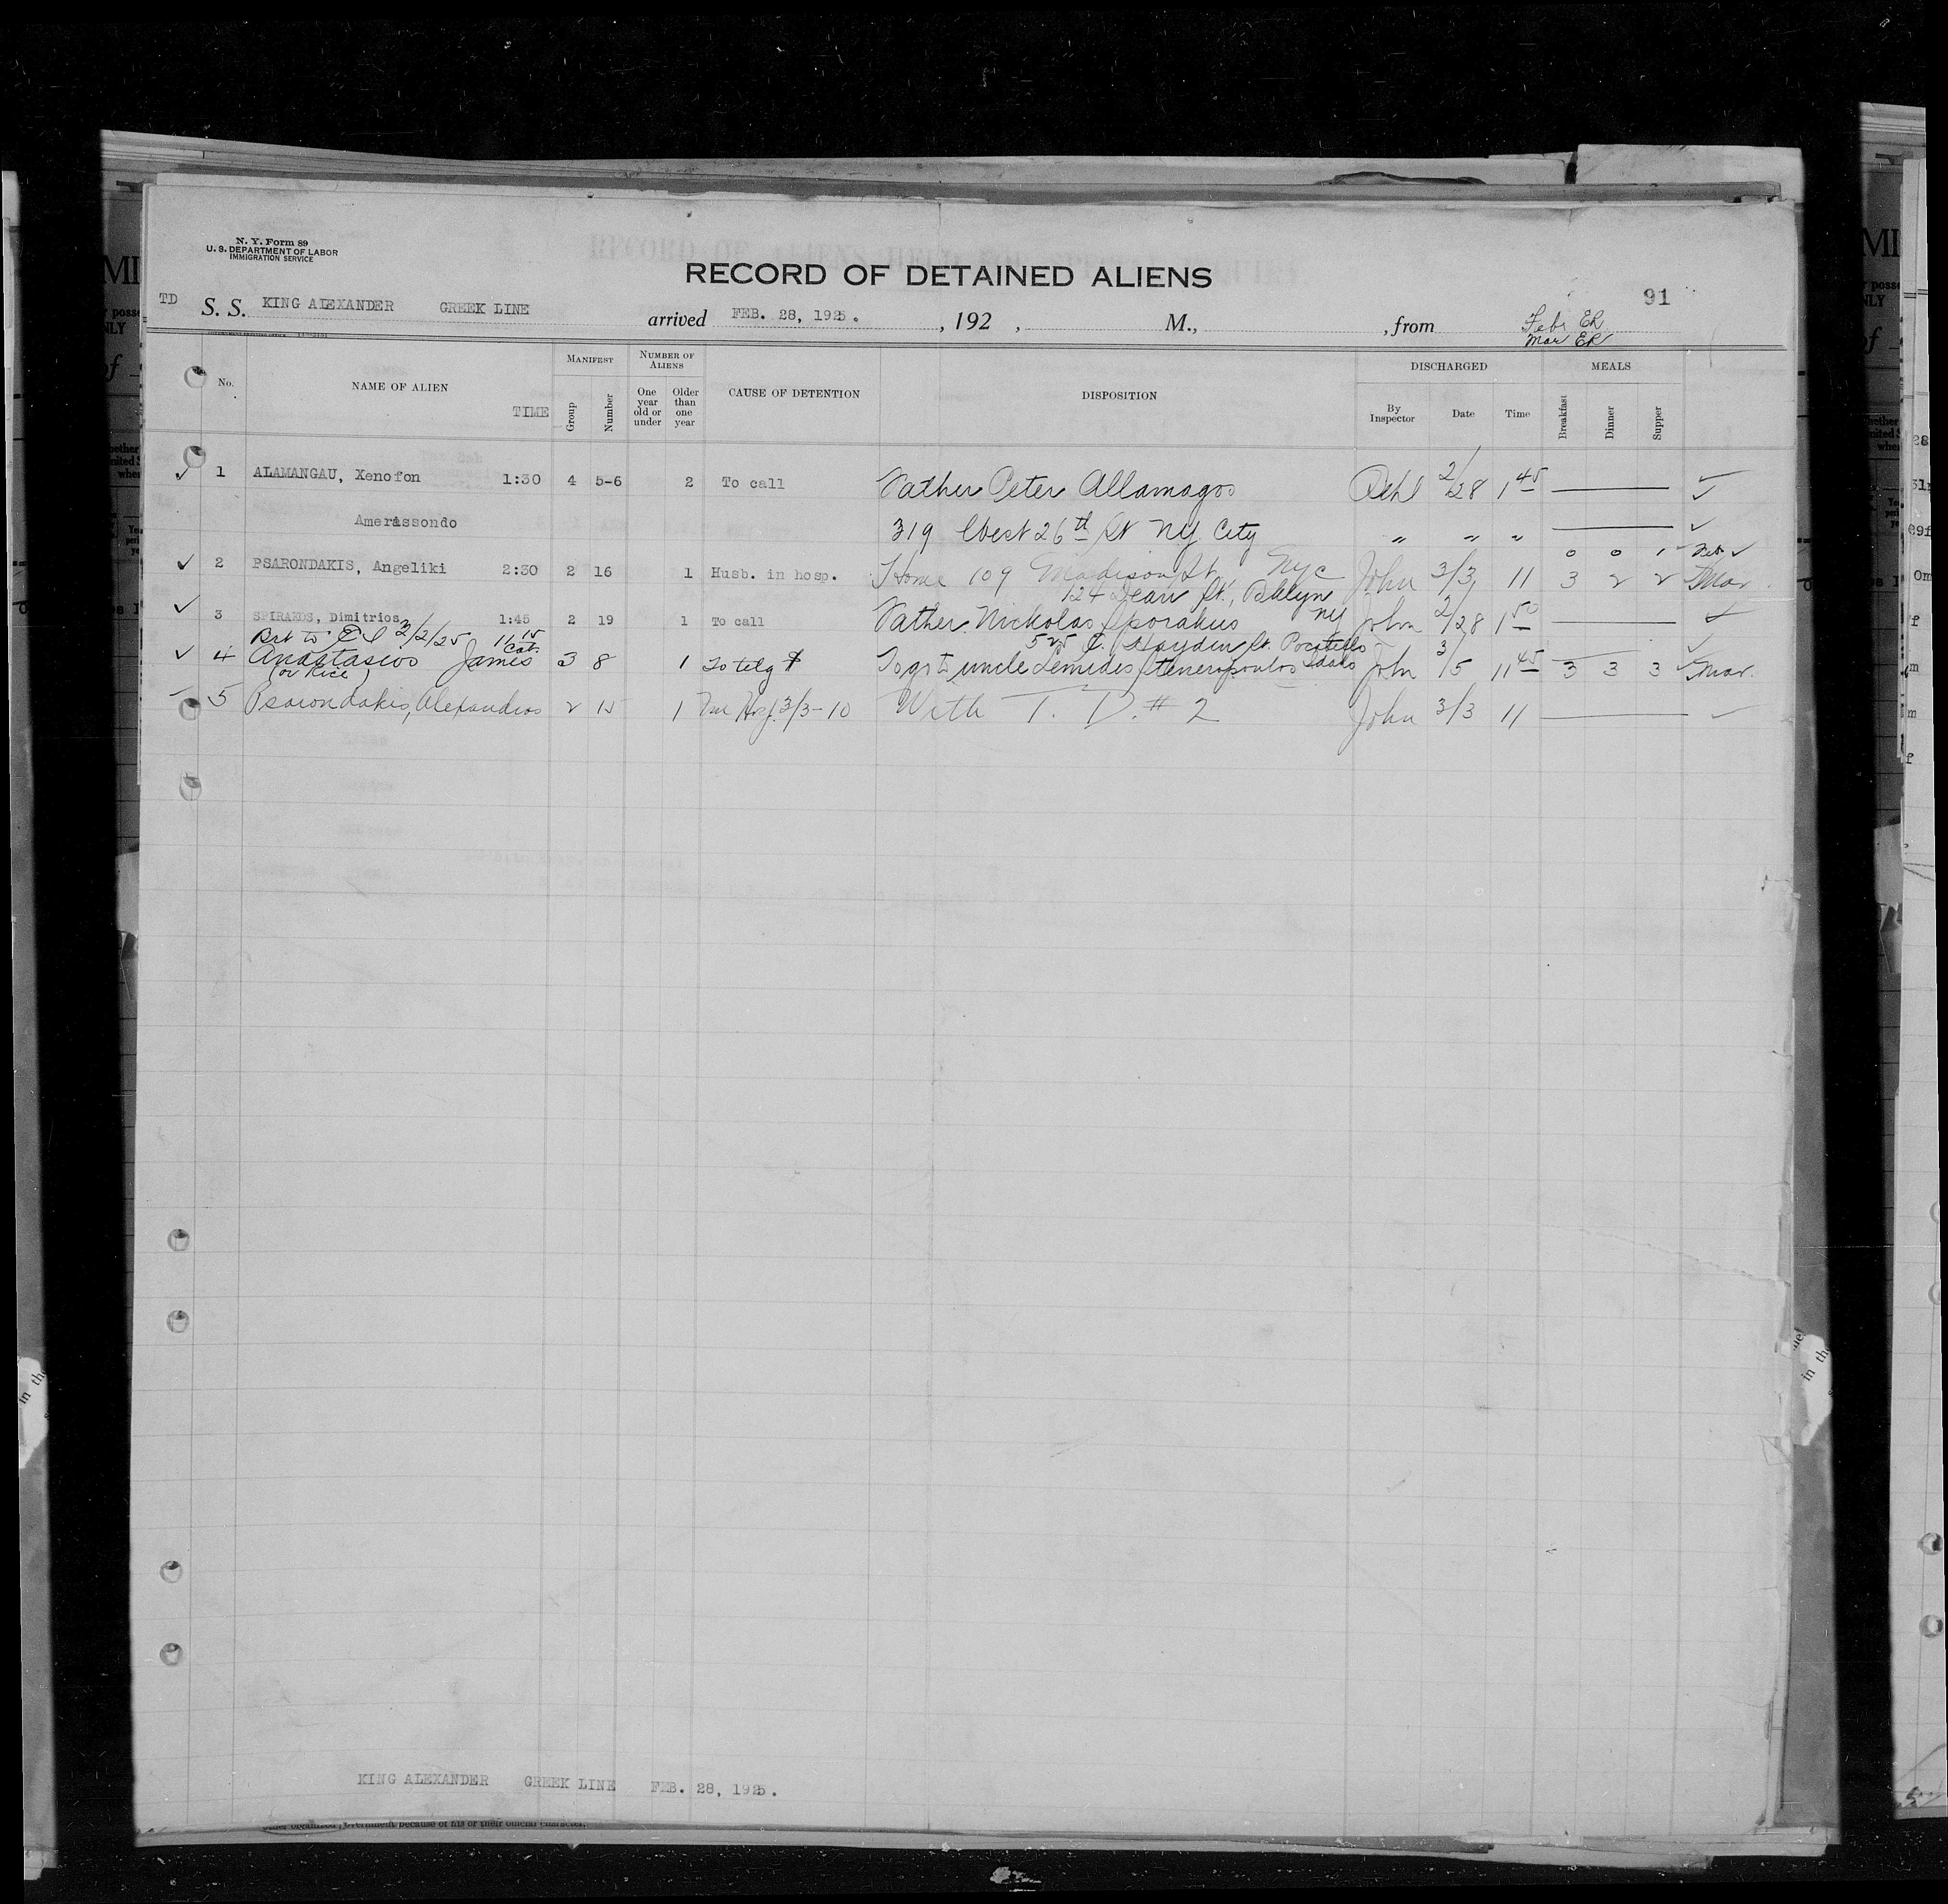 N. Y. Form 89
U. S. DEPARTMENT OF LABOR
IMMIGRATION SERVICE
RECORD OF DETAINED ALIENS
91
TD S. S. KING ALEXANDER GREEK LINE arrived FEB. 28, 1925. , 192 , M., , from Feb ER
Mar ER
No. NAME OF ALIEN TIME MANIFEST Group Number NUMBER OF ALIENS One year old or under Older than one year CAUSE OF DETENTION DISPOSITION DISCHARGED By Inspector Date Time MEALS Breakfast Dinner Supper
✓ 1 ALAMANGAU, Xenofon 1:30 4 5-6 2 To call Father Peter Allamagos 2/28 1 45 — ✓
Amerissondo 319 West 26th St NY City " " " — ✓
0 0 1 Feb ✓
✓ 2 PSARONDAKIS, Angeliki 2:30 2 16 1 Husb. in hosp. Home 109 Madison St NYC John 3/3 11 3 2 2 Mar.
124 Dean St., Bklyn
✓ 3 SPIRAKOS, Dimitrios 1:45 2 19 1 To call Father Nickolas Sporakus NY John 2/28 1 50 — ✓
2/2/25 11 15 525 Hayden St. Pocatello ✓
✓ 4 Anastasios James 3 8 1 To telg $ To gr to uncle Steneropoulos Idaho John 3/5 11 45 3 3 3 Mar.
(or Rice)
5 Psarondakis, Alexandros 2 15 1 Hosp. 3/3-10 With T. D. # 2 John 3/3 11 — ✓
KING ALEXANDER GREEK LINE FEB. 28, 1925.